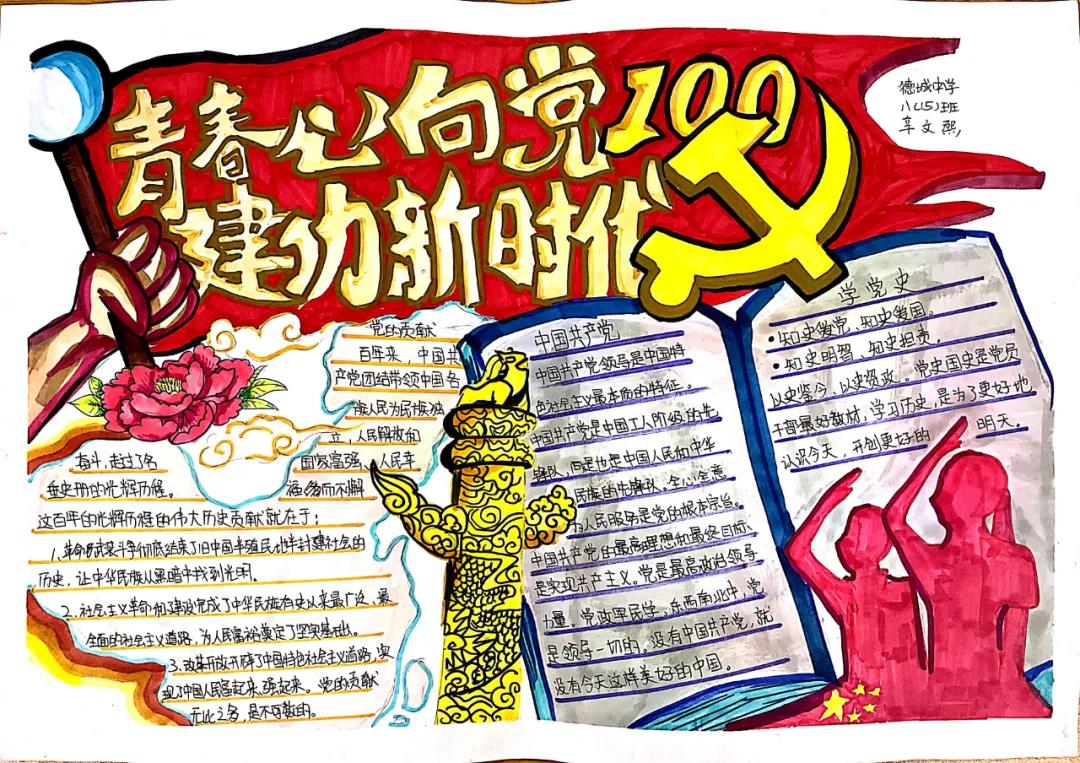 青春心向党100
建功新时代
德城中学
八(5)班
辛文熙
党的贡献
百年来，中国共
产党团结带领中国各
族人民为民族独
立，人民解放和
国家富强、人民幸
福多而不懈
奋斗，走过了名
垂史册的光辉历程。
这百年的光辉历程的伟大历史贡献就在于：
1.革命武装斗争彻底结束了旧中国半殖民地半封建社会的
历史，让中华民族从黑暗中找到光明。
2.社会主义革命和建设完成了中华民族有史以来最广泛、最
全面的社会主义道路，为人民富裕奠定了坚实基础。
3.改革开放开辟了中国特色社会主义道路，实
现了中国人民富起来、强起来。党的贡献
无比之多，是不可数的。
中国共产党
中国共产党领导是中国特
色社会主义最本质的特征。
中国共产党是中国工人阶级的先
锋队，同是也是中国人民和中华
民族的先锋队，全心全意
为人民服务是党的根本宗旨。
中国共产党的最高理想和最终目标
是实现共产主义。党是最高政治领导
力量，党政军民学，东西南北中，党
是领导一切的。没有中国共产党，就
没有今天这样美好的中国。
学党史
•知史爱党、知史爱国。
•知史明智、知史担责。
以史鉴今、以史资政。党史国史是党员
干部最好教材，学习历史，是为了更好地
认识今天，开创更好的 明天。